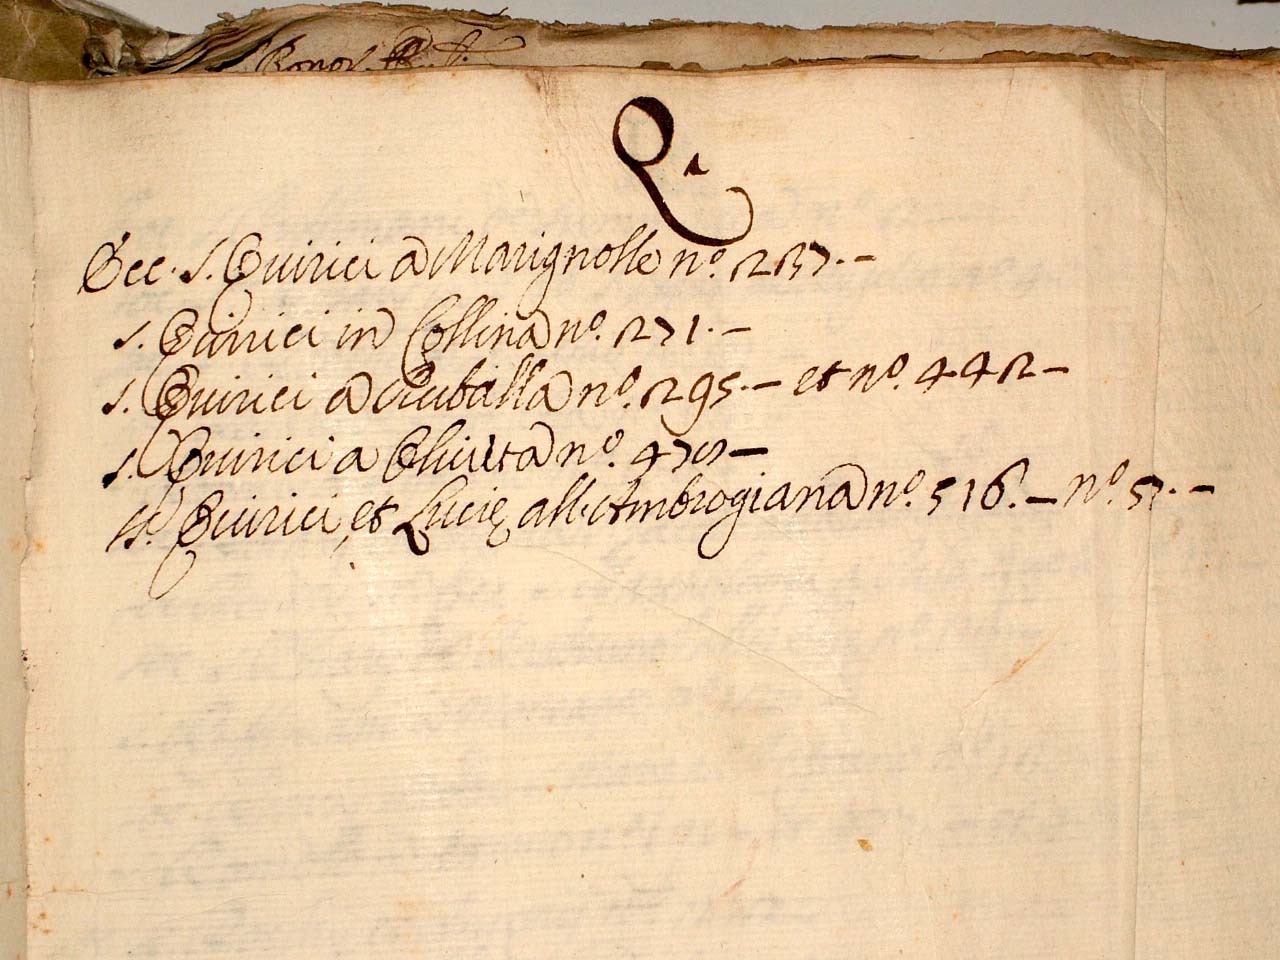 Q.
Ecc. S. Quirici a Marignolle nº. 237. —
S. Quirici in Collina nº. 271. —
S. Quirici a Ruballa nº. 295. — et nº. 442 —
S. Quirici a nº. 479 —
SS. Quirici, et Lucię all'Ambrogiana nº. 516. — nº. 57. —